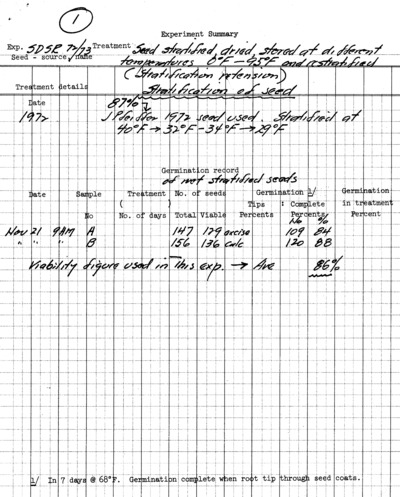 1
Experiment Summary
Exp. SDSR 72/73 Treatment Seed stratified, dried, stored at different
Seed - source, name temperatures 0°F - 95°F and restratified
(Stratification retension)
Treatment details Stratification of seed
Date 87%
1972 1972 seed used. Stratified at
40°F → 32°F - 34°F → 29°F
Germination record
of wet stratified seeds
Date Sample Treatment No. of seeds Germination 1/ Germination
( ) Tips : Complete in treatment
No No. of days Total Viable Percents Percents Percent
No %
Nov 21 9AM A 147 129 excise 109 84
" " " B 156 136 calc 120 88
Viability figure used in this exp. → Ave 86%
1/ In 7 days @ 68°F. Germination complete when root tip through seed coats.